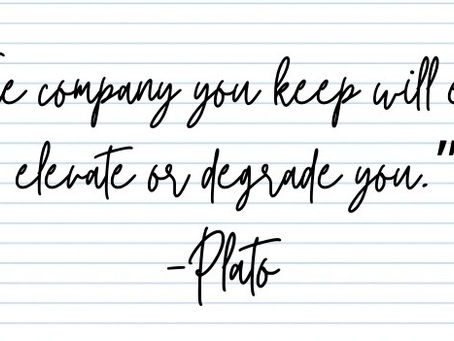 company you keep will
elevate or degrade you."
-Plato